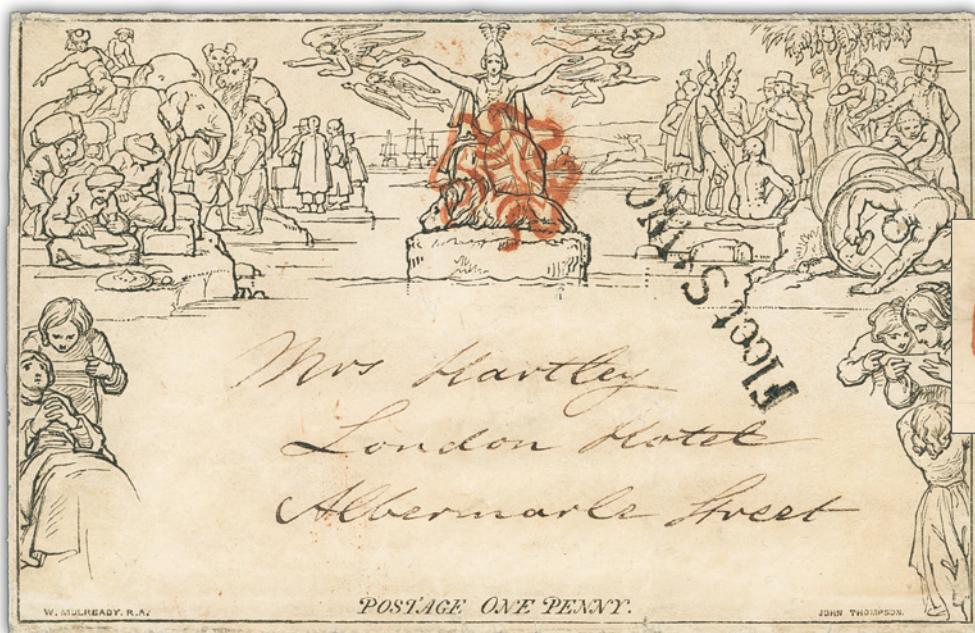 Fleet St. M.O
Mrs Hartley
London Hotel
Albermarle Street
W. MULREADY. R.A.
POSTAGE ONE PENNY.
JOHN THOMPSON.